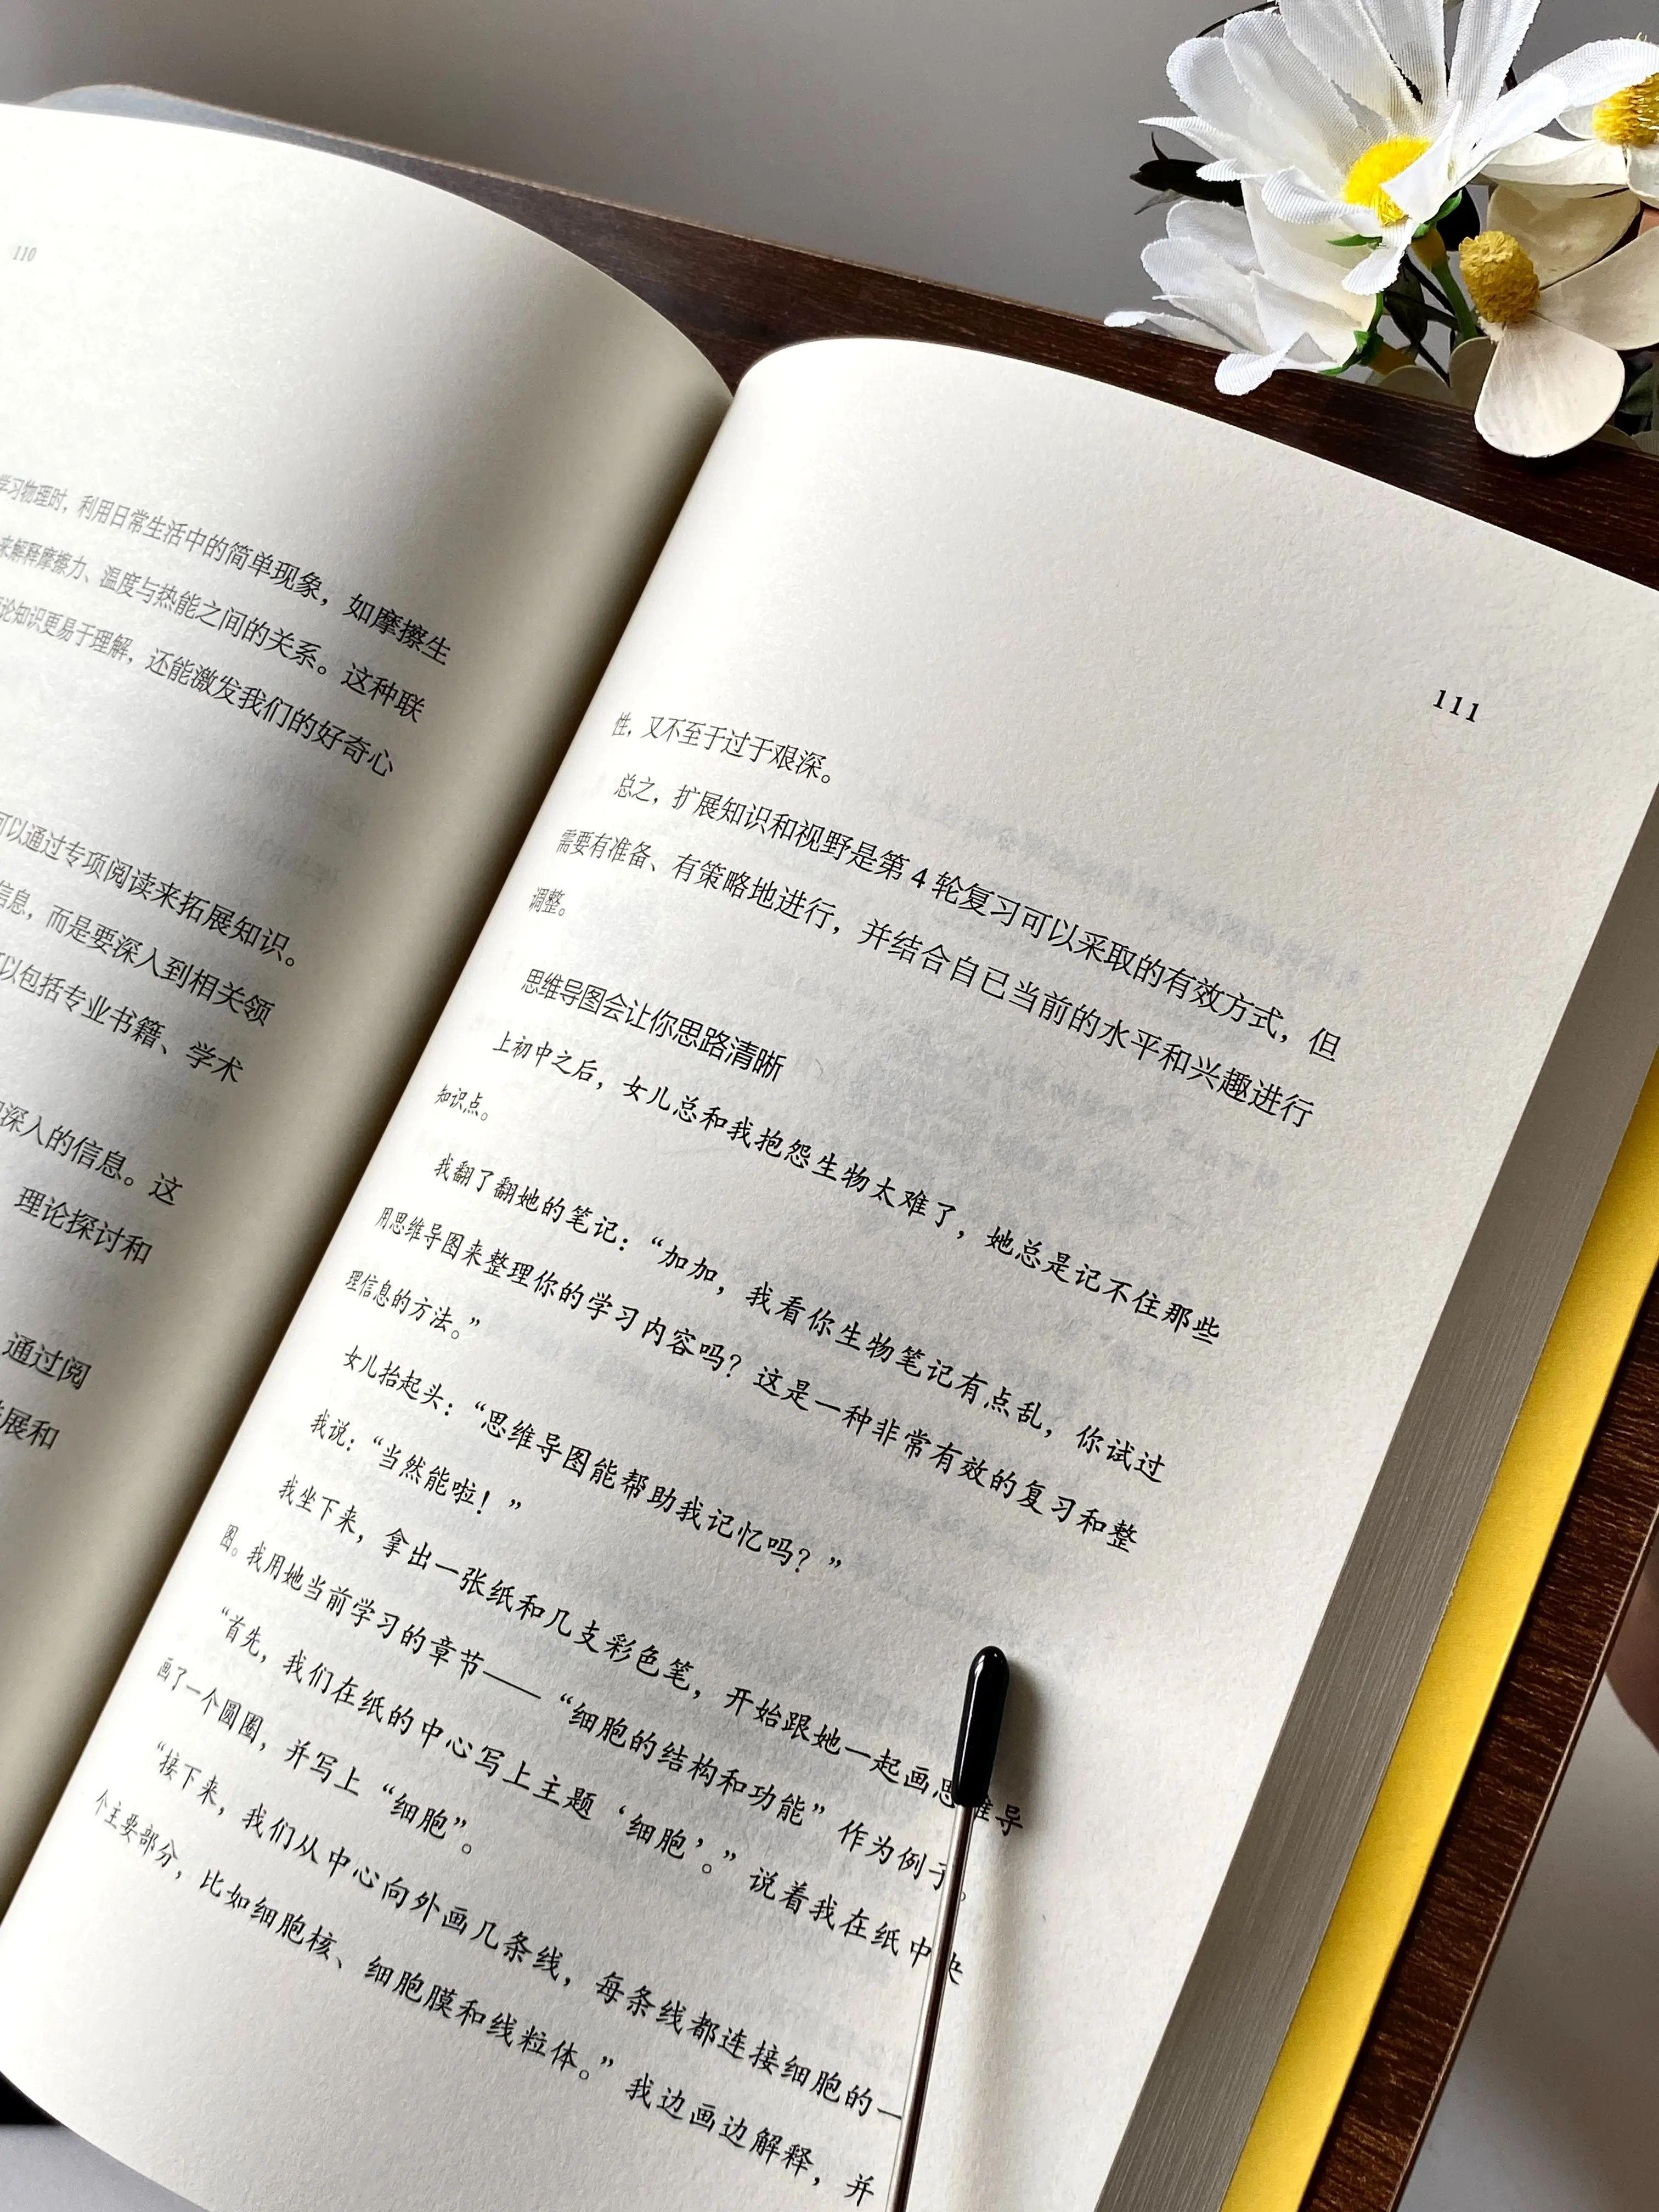 110
学习物理时，利用日常生活中的简单现象，如摩擦生
来解释摩擦力、温度与热能之间的关系。这种联
论知识更易于理解，还能激发我们的好奇心
可以通过专项阅读来拓展知识。
信息，而是要深入到相关领
以包括专业书籍、学术
深入的信息。这
理论探讨和
通过阅
展和
111
性，又不至于过于艰深。
总之，扩展知识和视野是第 4 轮复习可以采取的有效方式，但
需要有准备、有策略地进行，并结合自己当前的水平和兴趣进行
调整。
思维导图会让你思路清晰
上初中之后，女儿总和我抱怨生物太难了，她总是记不住那些
知识点。
我翻了翻她的笔记：“加加，我看你生物笔记有点乱，你试过
用思维导图来整理你的学习内容吗？这是一种非常有效的复习和整
理信息的方法。”
女儿抬起头：“思维导图能帮助我记忆吗？”
我说：“当然能啦！”
我坐下来，拿出一张纸和几支彩色笔，开始跟她一起画思维导
图。我用她当前学习的章节——“细胞的结构和功能”作为例子。
“首先，我们在纸的中心写上主题‘细胞’。”说着我在纸中央
画了一个圆圈，并写上“细胞”。
“接下来，我们从中心向外画几条线，每条线都连接细胞的一
个主要部分，比如细胞核、细胞膜和线粒体。”我边画边解释，并